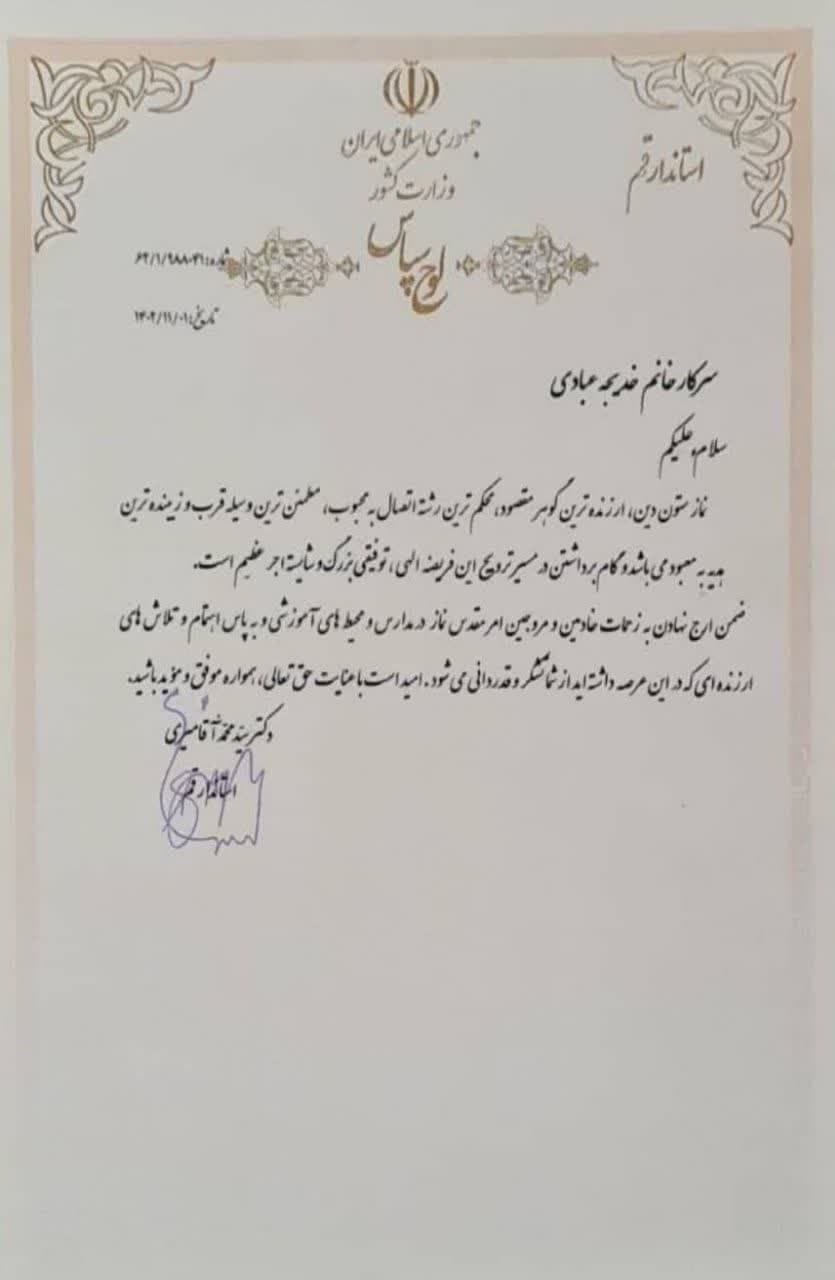 جمهوری اسلامی ایران
استاندار قم
وزارت کشور
لوح سپاس
شماره: ۶۲/۱/۹۸۸۰۴۱
تاریخ: ۱۴۰۲/۱۱/۰۱
سرکار خانم خدیجه عبادی
سلام علیکم
نماز ستون دین، ارزنده ترین گوهر مقصود، محکم ترین رشته اتصال به محبوب، مطمئن ترین وسیله قرب و زیبنده ترین
هدیه به معبود می باشد و گام برداشتن در مسیر ترویج این فریضه الهی، توفیقی بزرگ و شایسته اجر عظیم است.
ضمن ارج نهادن به زحمات خادمین و مروجین امر مقدس نماز در مدارس و محیط های آموزشی و به پاس اهتمام و تلاش های
ارزنده ای که در این عرصه داشته اید از شما تشکر و قدردانی می شود. امید است با عنایت حق تعالی، همواره موفق و مؤید باشید.
دکتر سید محمد آقامیری
استاندار قم